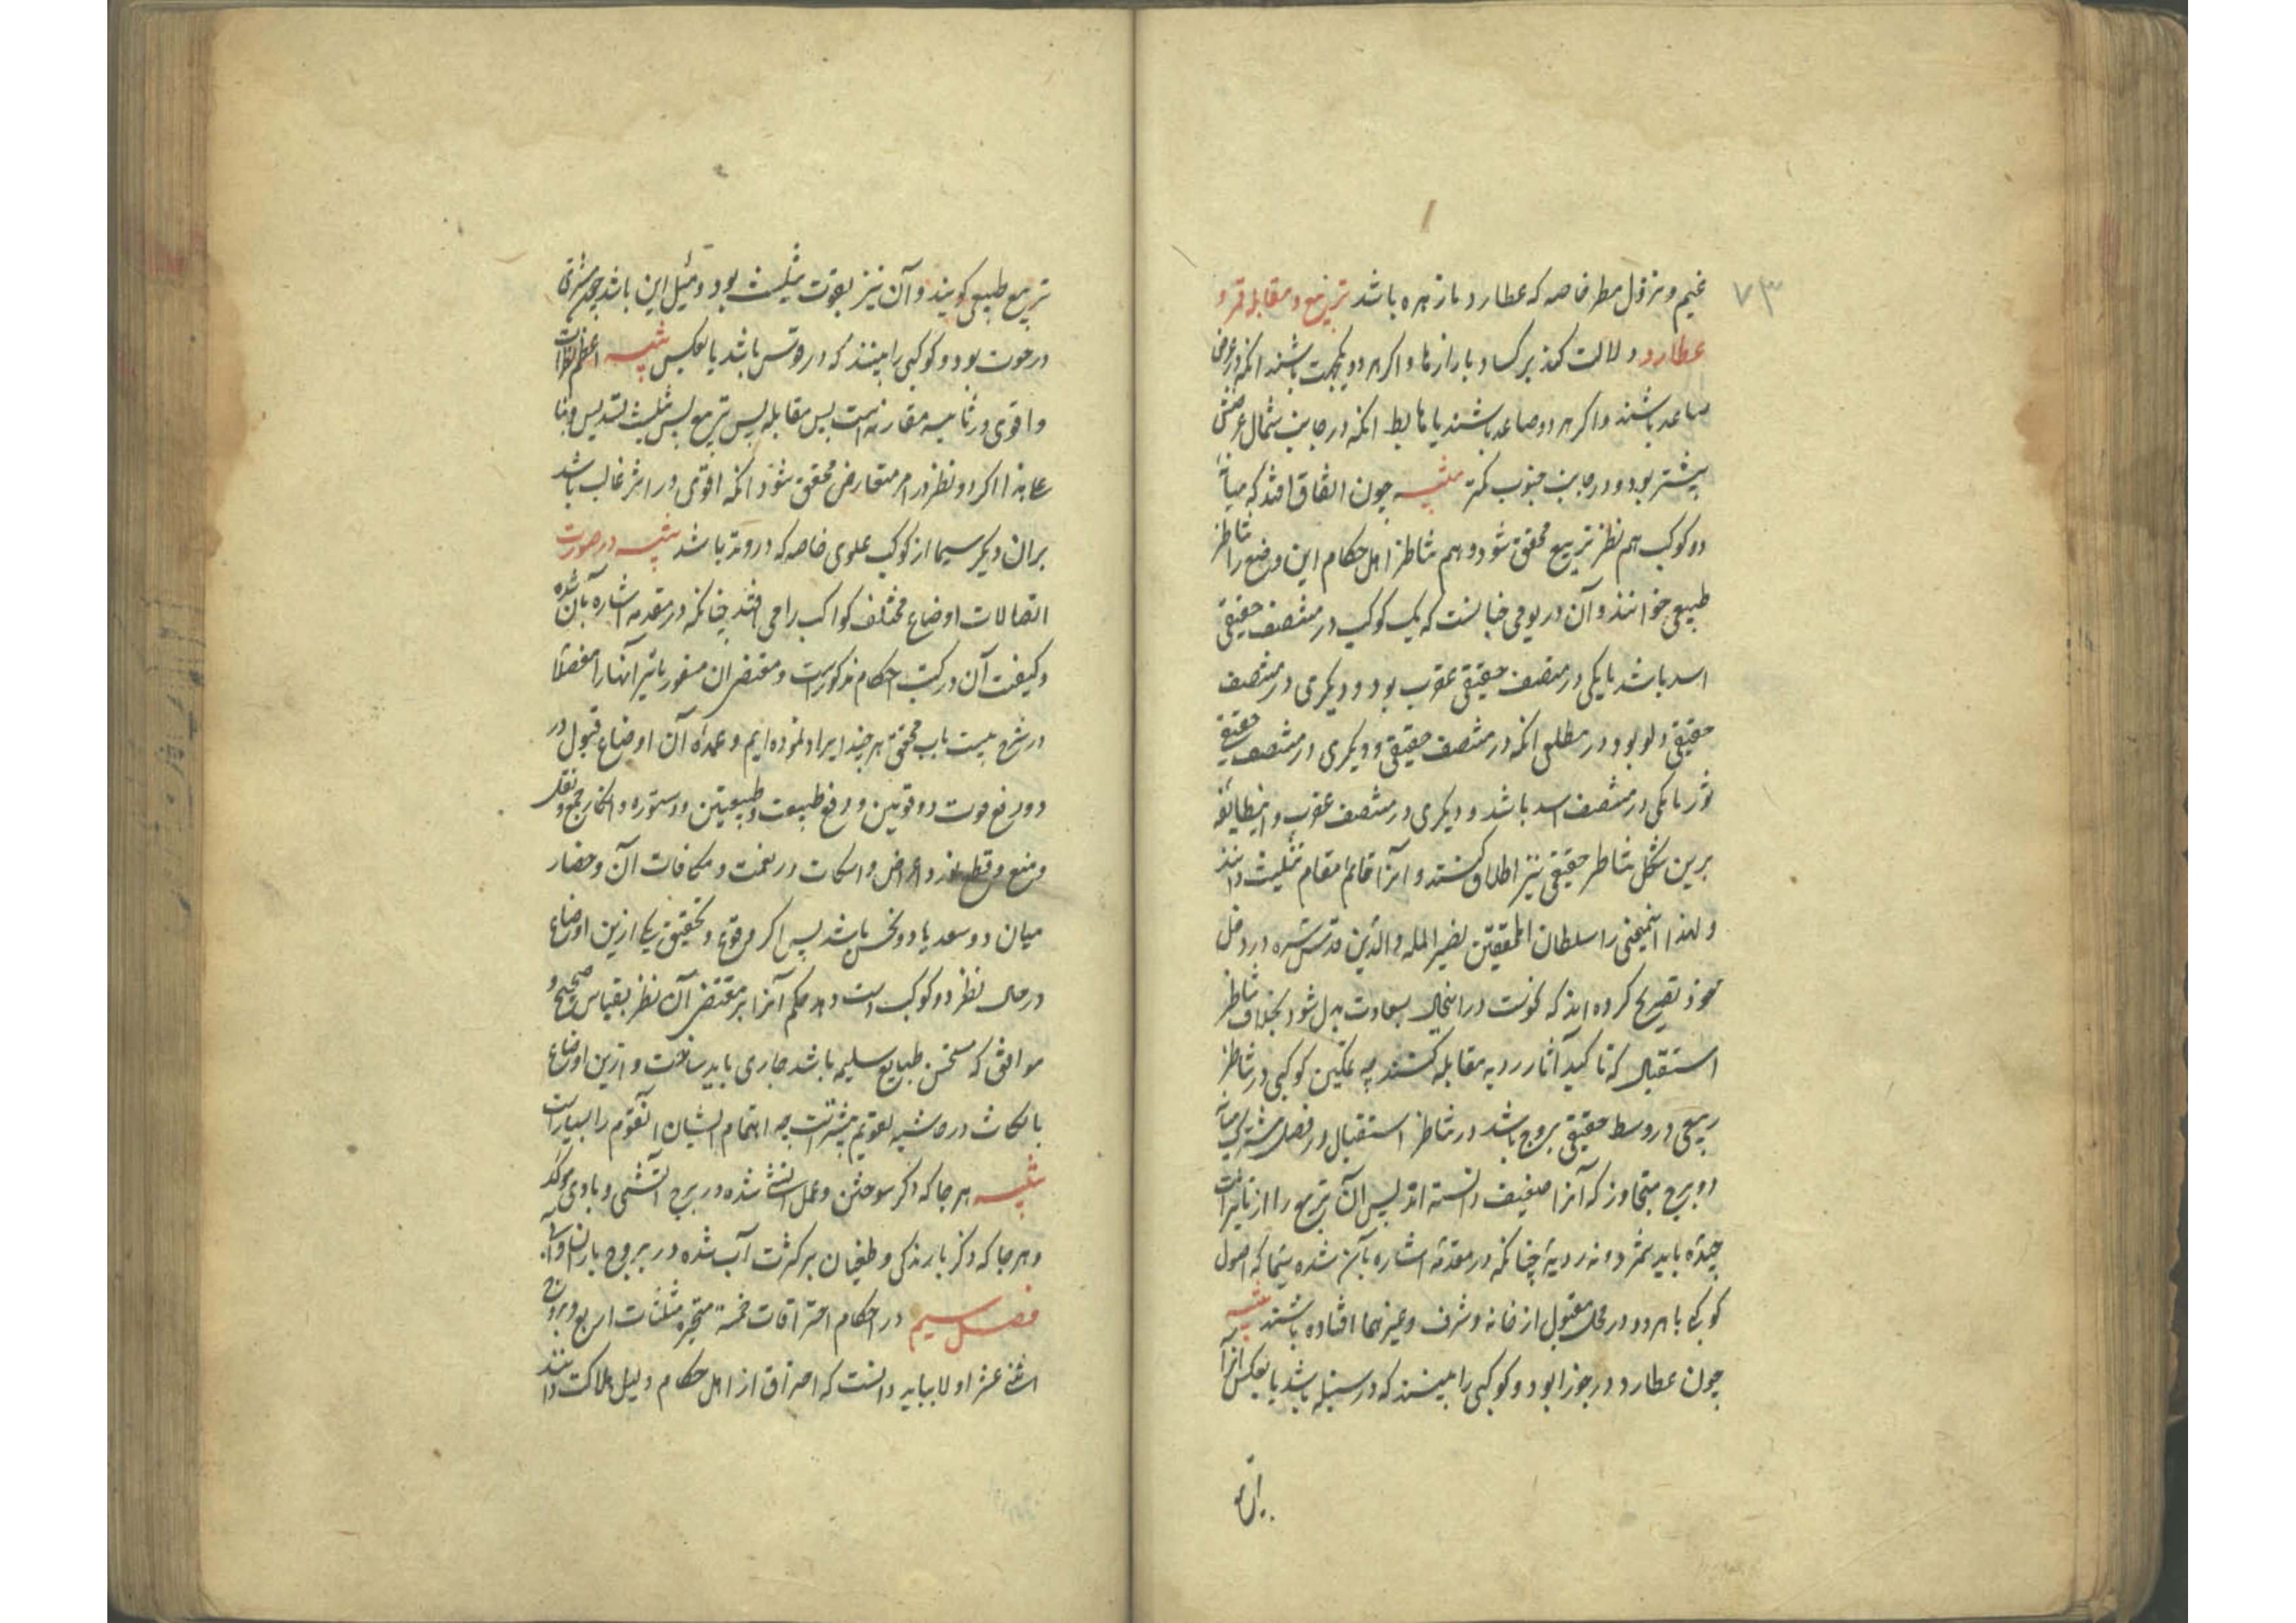 ۷۳
غیم و نزول مطر خاصه که عطارد با زهره باشد تربیع و مقابله قمر و
عطارد دلالت کند بر کساد بازارها و اگر هر دو یکجهت باشند انکه در عرض
صاعد باشند و اگر هر دو صاعد باشند یا هابط انکه در جانب شمال عرضش
بیشتر بود و در جانب جنوب کمتر تنبیه چون اتفاق افتد که میانهٔ
دو کوکب هم نظر تربیع محقق شود و هم تناظر اهل احکام این وضع را تناظر
طبیعی خوانند و آن در یومی چنانست که یک کوکب در منتصف حقیقی
اسد باشد یا یکی در منتصف حقیقی عقرب بود و دیگری در منتصف
حقیقی دلو بود و در مطلعی انکه در منتصف حقیقی و دیگری در منتصف حقیقی
ثور یا یکی در منتصف اسد باشد و دیگری در منتصف عقرب و این طایفه
برین شکل تناظر حقیقی نیز اطلاق کنند و آنرا قایم مقام تثلیث دانند
و لهذا اینمعنی را سلطان المحققین نصیر المله والدین قدس سره در مدخل
خود تصریح کرده اند که نحوست در اینحال بسعادت بدل شود بخلاف تناظر
استقبال که تاکید آثار ردیه مقابله کنند چه تمکین کوکبی در تناظر
ربیعی در وسط حقیقی بروج باشد و در تناظر استقبال در فصل مشترک میانه
دو برج متجاور که آنرا ضعیف دانسته اند پس آن تربیع را از تاثیرات
جیده باید شمرد نه ردیهٔ چنانکه در مقدمهٔ اشاره بآن شده سیما که اصول
کوکبی یا هر دو در محل مقبول از خانه و شرف و غیرهما افتاده باشند تنبیه
چون عطارد در جوزا بود و کوکبی را بیند که در سنبله باشد یا بعکس آنرا
تربیع طبیعی گویند و آن نیز بقوت تثلیث بود و مثل این باشد چون مشتری
در حوت بود و کوکبی را بیند که در قوس باشد یا بعکس تنبیه اعظم نظرات
و اقوی در تاثیر مقارنه است پس مقابله پس تربیع پس تثلیث پس تسدیس و بنا
علی هذا اگر دو نظر در امر متعارض محقق شود انکه اقوی در اثر غالب باشد
بر آن دیگر سیما از کوکب علوی خاصه که در وتد باشد تنبیه در صورت
اتصالات اوضاع مختلف کواکب را می افتد چنانکه در مقدمه اشاره بآن شده
و کیفیت آن در کتب احکام مذکور است و مقتضای تاثیر آنها را مفصلا
در شرح بیست باب محقق هرچند ایراد نموده ایم و عمدهٔ آن اوضاع قبول و رد
و دفع قوت و دو قوتین و دفع طبیعت و طبیعتین و دستوره و انکار و جمع و نقل
و منع و قطع نور و اعراض و مکافات در نعمت و مکافات آن و حصار
میان دو سعد یا دو نحس باشد پس اگر وقوع و تحقیق یکی ازین اوضاع
در حال نظر دو کوکب دست دهد حکم آنرا بر مقتضی آن نظر بقیاس صحیح و
موافق که مستحسن طبایع سلیمه باشد جاری باید ساخت و ازین اوضاع
در حاشیه تقویم ثبت است چه اهتمام ایشان
تنبیه هر جا که ذکر سوختن و عمل آتش شده در برج آتشی و بادی موکد
و هر جا که ذکر بارندگی و طغیان بر کثرت آب شده در بروج بارانی و آبی
فصل سیم در احکام احتراقات خمسه متحیره مثلثات اربع و بروج
اثنی عشر اولا بباید دانست که احتراق از اهل احکام دلیل هلاکت دانند